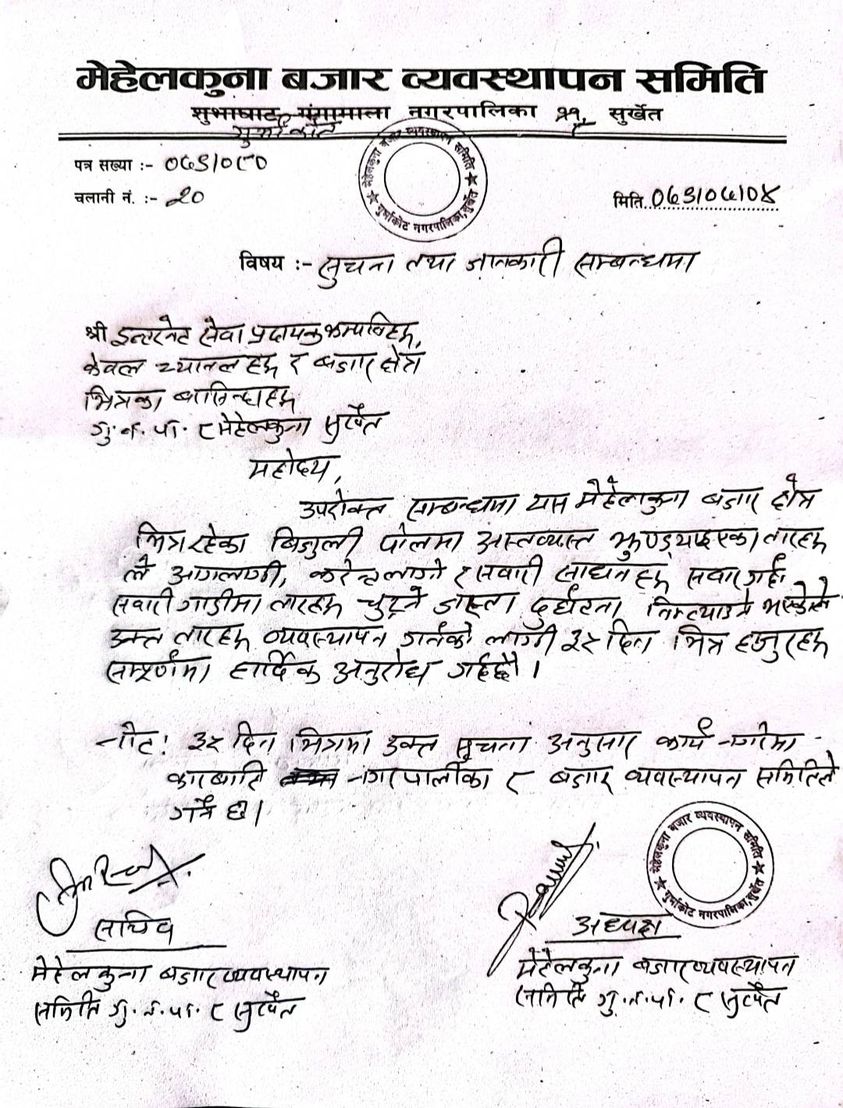 मेहेलकुना बजार व्यवस्थापन समिति
शुभाघाट गंगामाला नगरपालिका ११, सुर्खेत
गुर्भाकोट
पत्र सख्या :- ०७९/०८०
चलानी नं. :- २०
मेहेलकुना बजार व्यवस्थापन समिति
गुर्भाकोट नगरपालिका, सुर्खेत
मिति. ०७९/०७/०४
विषय :- सुचना तथा जानकारी सम्बन्धमा
श्री इन्टरनेट सेवा प्रदायक कम्पनिहरू,
केवल च्यानल हरू र बजार क्षेत्र
भित्रका बासिन्दाहरू
गु.न.पा. ८ मेहेलकुना सुर्खेत
महोदय,
उपरोक्त सम्बन्धमा यस मेहेलकुना बजार क्षेत्र
भित्र रहेका बिजुली पोलमा अस्तव्यस्त झुण्ड्याइएका तारहरू
ले आगलागी, करेन्ट लाग्ने र सवारी साधन हरू सवार गर्दा
सवारी गाडीमा तारहरू चुड्ने जस्ता दुर्घटना निम्त्याउने भएकोले
उक्त तारहरू व्यवस्थापन गर्नको लागी ३५ दिन भित्र हजुरहरू
सम्पूर्णमा हार्दिक अनुरोध गर्दछौ ।
नोट: ३५ दिन भित्रमा उक्त सुचना अनुसार कार्य नगरेमा
कारबाहि नगरपालीका ८ बजार व्यवस्थापन समितिले
गर्ने छ।
सचिव
मेहेलकुना बजार व्यवस्थापन
समिति गु.न.पा. ८ सुर्खेत
मेहेलकुना बजार व्यवस्थापन समिति
गुर्भाकोट नगरपालिका, सुर्खेत
अध्यक्ष
मेहेलकुना बजार व्यवस्थापन
समिति गु.न.पा. ८ सुर्खेत